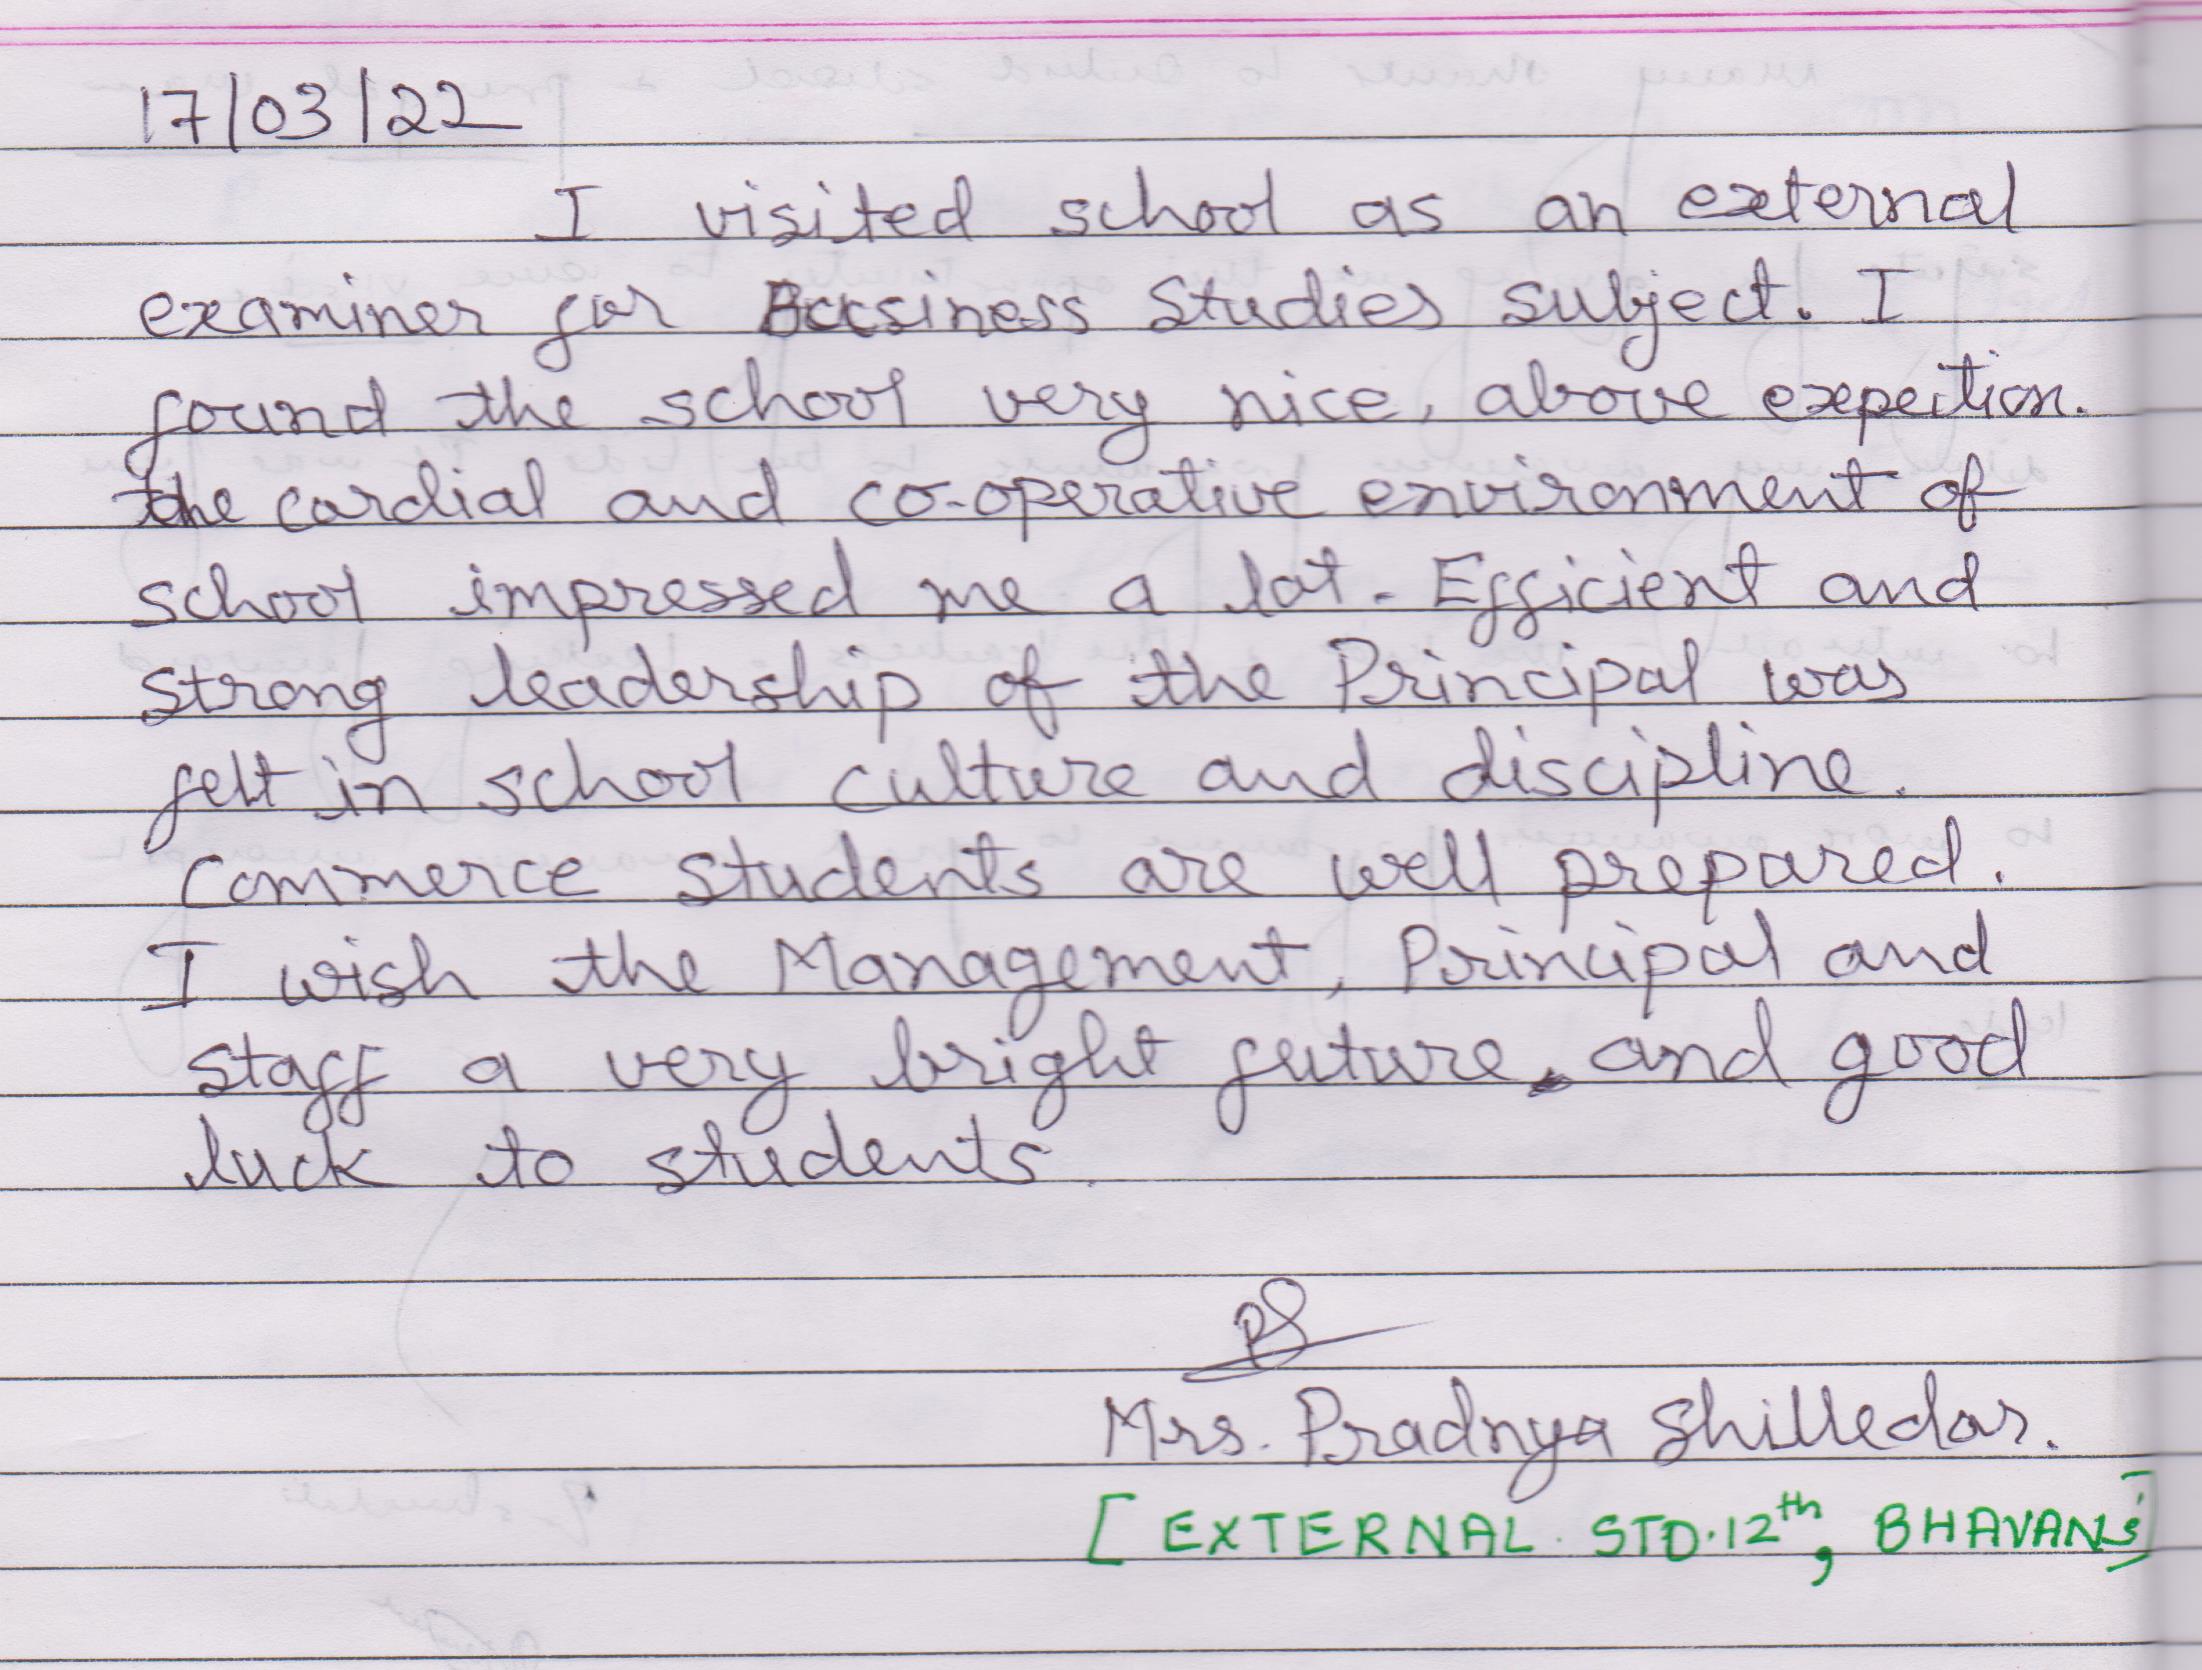 17/03/22
I visited school as an external
examiner for Business Studies subject. I
found the school very nice, above expection.
the cordial and co-operative environment of
school impressed me a lot. Efficient and
strong leadership of the Principal was
felt in school culture and discipline.
Commerce students are well prepared.
I wish the Management, Principal and
staff a very bright future, and good
luck to students.
PS
Mrs. Pradnya Shilledar.
[EXTERNAL. STD. 12th, BHAVANS]